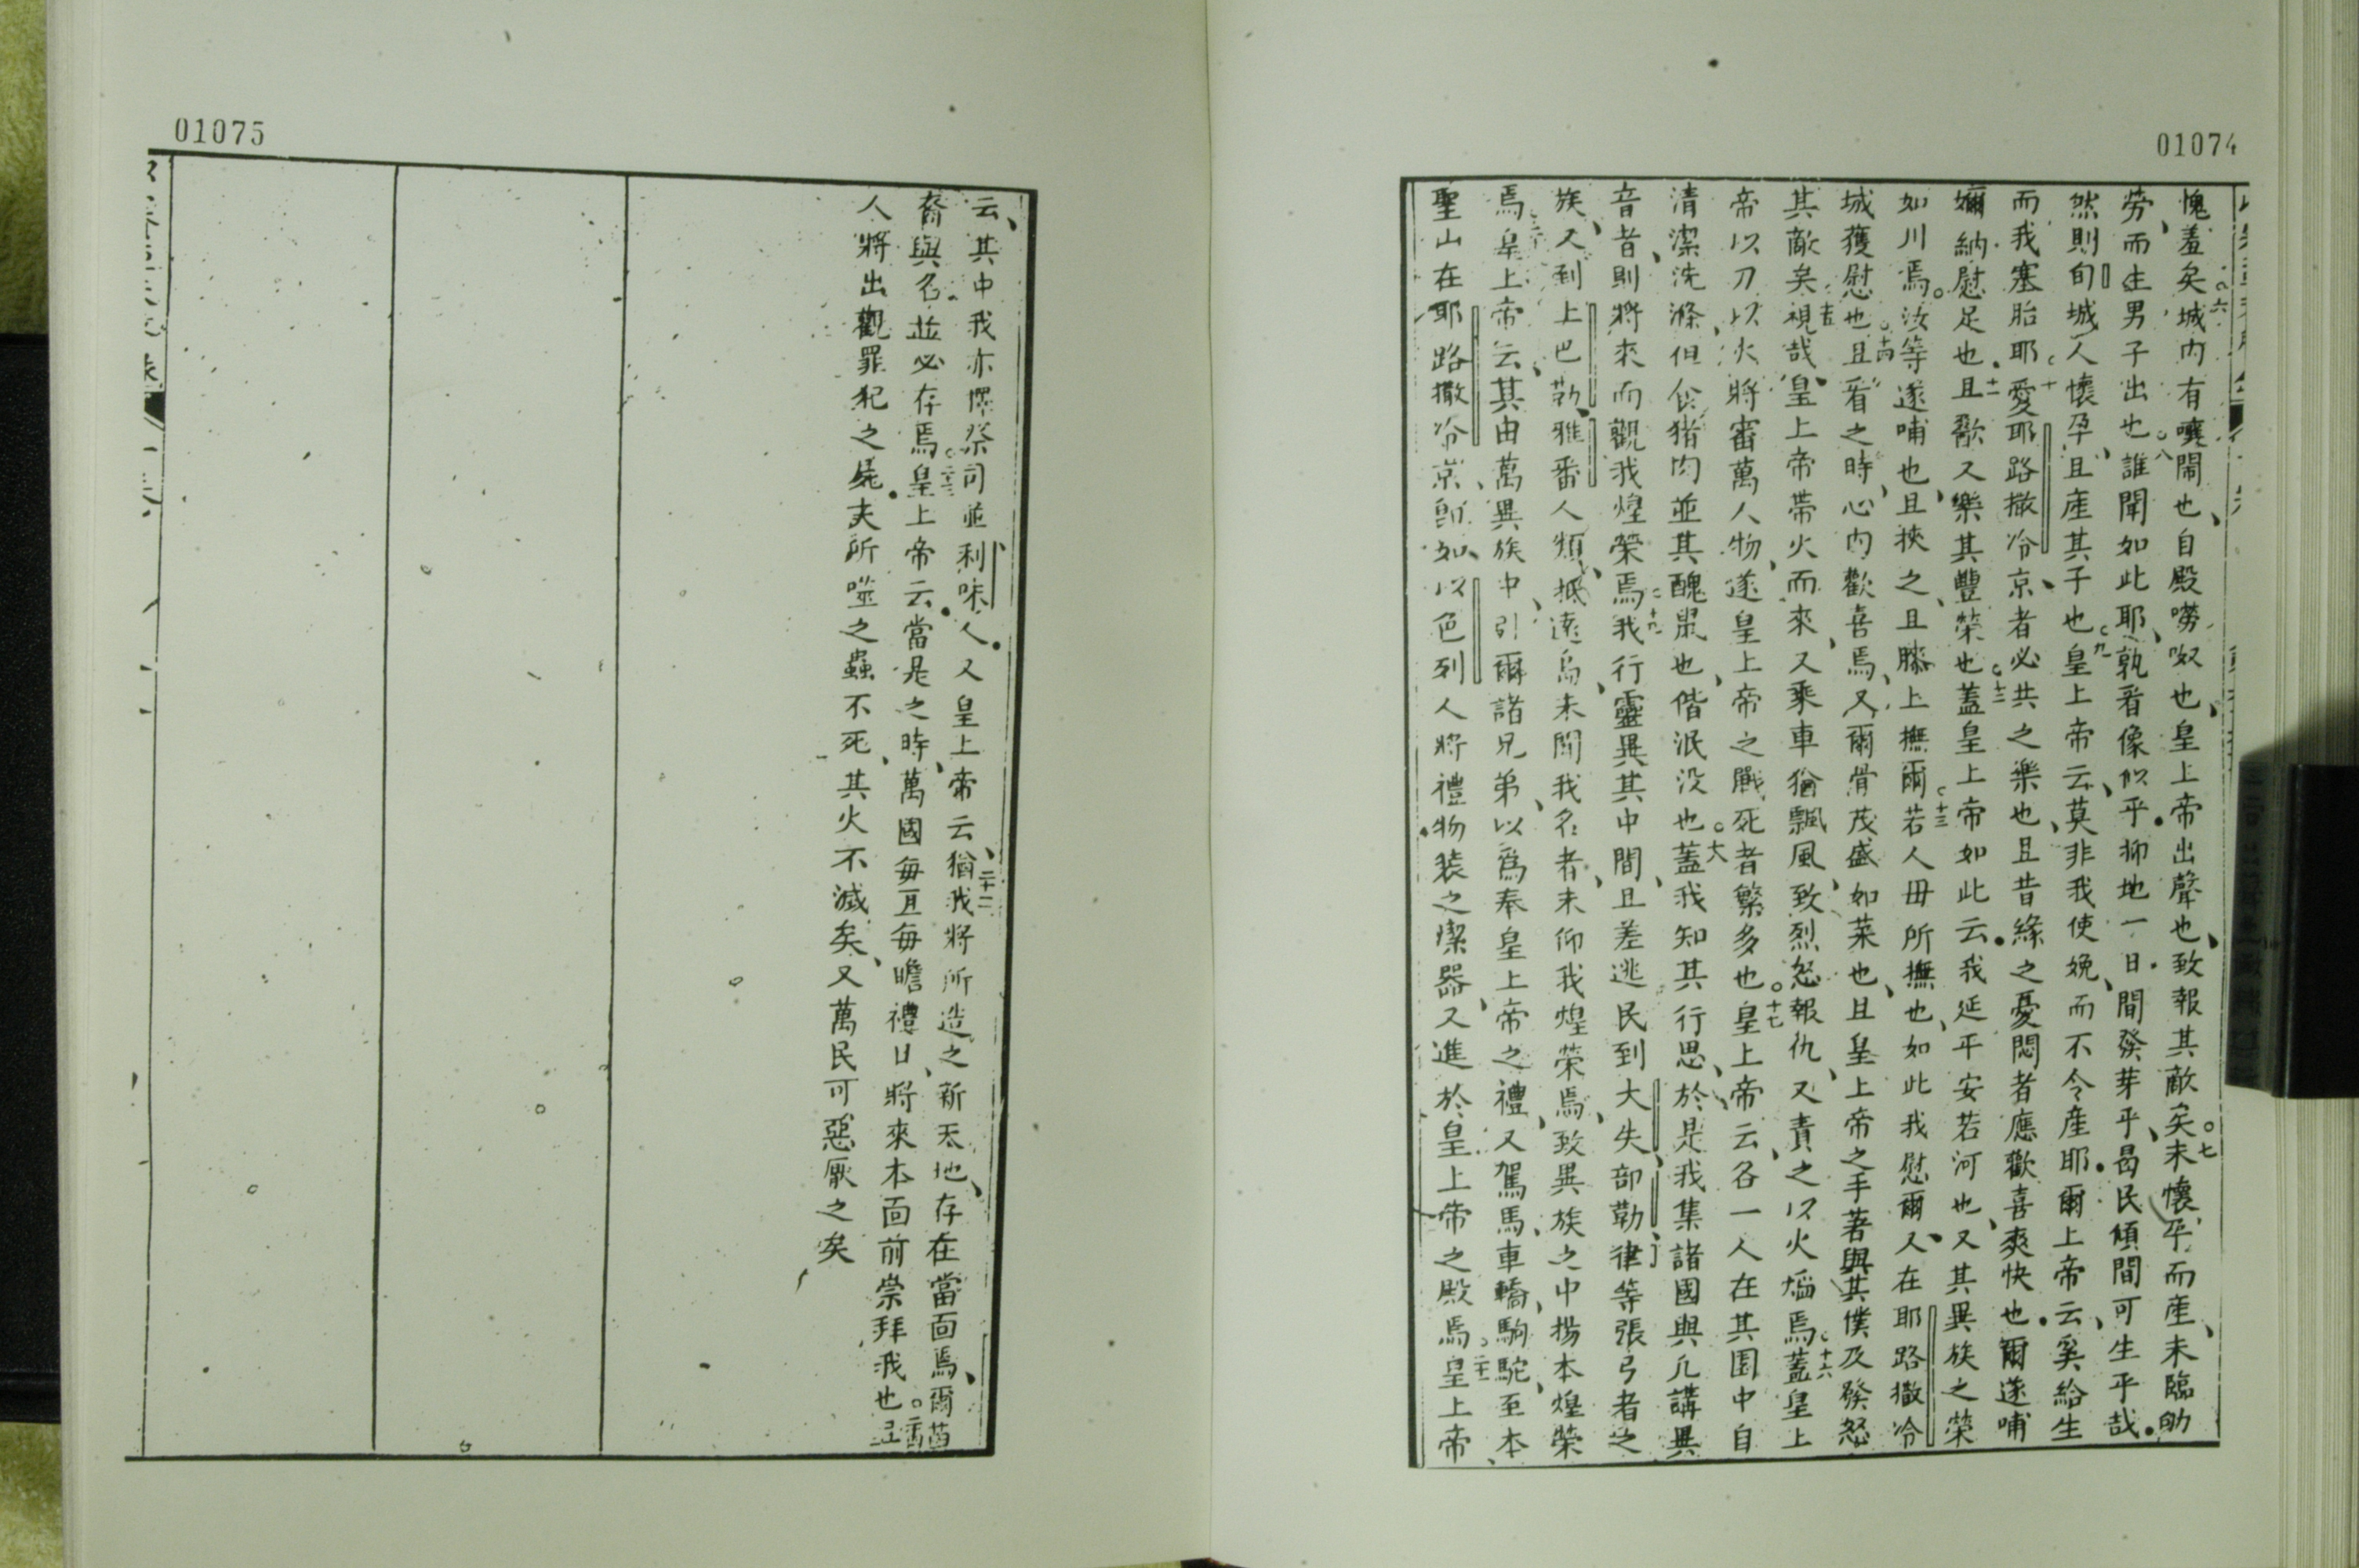 01074
愧羞矣。六城内有嚷鬧也、自殿嘮呶也、皇上帝出聲也、致報其敵矣。七未懷孕、而産、未臨劬
勞、而生男子出也。八誰聞如此耶、孰看像似乎、抑地一日間發芽乎、曷民傾間可生乎哉。
然則旬城人懷孕、且産其子也。九皇上帝云、莫非我使娩、而不令産耶、爾上帝云、奚給生
而我塞胎耶。十愛耶路撒冷京者、必共之樂也、且昔緣之憂悶者應歡喜爽快也、爾遂哺
嬭納慰足也。十一且歠又樂其豐榮也。十二蓋皇上帝如此云、我延平安若河也、又其異族之榮
如川焉。汝等遂哺也、且挾之、且膝上撫爾。十三若人毋所撫也、如此我慰爾、又在耶路撒冷
城獲慰也。十四且看之時、心内歡喜焉、又爾骨茂盛如菜也、且皇上帝之手著與其僕及發怒
其敵矣。十五視哉、皇上帝帶火而來、又乘車猶飄風、致烈怒報仇、又責之以火熖焉。十六蓋皇上
帝以刀以火將審萬人物、遂皇上帝之戰死者繁多也。十七皇上帝云、各一人在其園中自
清潔洗滌、但食猪肉並其醜鼠也、偕泯没也。十八蓋我知其行思、於是我集諸國與凡講異
音者、則將來而觀我煌榮焉。十九我行靈異其中間、且差逃民到大失、部勒、律等張弓者之
族、又到土巴、勒雅番人類、抵遠島未聞我名者、未仰我煌榮焉、致異族之中揚本煌榮
焉。二十皇上帝云、其由萬異族中、引爾諸兄弟、以爲奉皇上帝之禮、又駕馬、車轎、駒駝至本
聖山在耶路撒冷京、卽如以色列人將禮物裝之潔器、又進於皇上帝之殿焉。二十一皇上帝
01075
云、其中我亦擇祭司並利味人、又皇上帝云、二十二猶我將所造之新天地、存在當面焉、爾苗
裔與名並必存焉。二十三皇上帝云、當是之時、萬國每亘每瞻禮日、將來本面前崇拜我也。二十四且
人將出觀罪犯之屍、夫所噬之蟲不死、其火不滅矣、又萬民可惡厭之矣